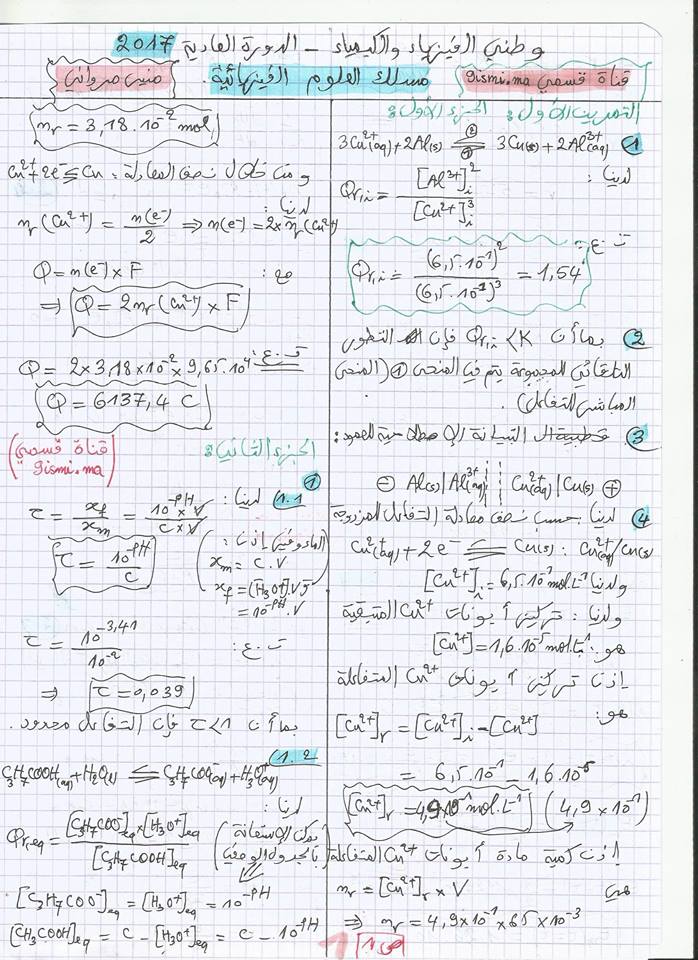 وطني الفيزياء والكيمياء - الدورة العادية 2017
قناة قسمي 9ismi.ma
مسلك العلوم الفيزيائية.
منير مرواني
التمرين الأول: الجزء الأول:
1 3Cu²⁺(aq) + 2Al(s) ⇌ 3Cu(s) + 2Al³⁺(aq)
② ①
لدينا:
Qr,i = [Al³⁺]i² / [Cu²⁺]i³
ت.ع:
Qr,i = (6,5.10⁻¹)² / (6,5.10⁻¹)³ = 1,54
2 بما أن Qr,i < K فإن التطور
التلقائي للمجموعة يتم في المنحى ① (المنحى
المباشر للتفاعل).
3 . قطبية و التبيانة الإصطلاحية للعمود:
⊖ Al(s) | Al³⁺(aq) ¦¦ Cu²⁺(aq) | Cu(s) ⊕
4 لدينا بحسب نصف معادلة التفاعل للمزدوجة
Cu²⁺(aq) + 2e⁻ ⇌ Cu(s) : Cu²⁺(aq)/Cu(s)
ولدينا [Cu²⁺]i = 6,5.10⁻¹ mol.L⁻¹
ولدينا: تركيز أيونات Cu²⁺ المتبقية
هو: [Cu²⁺] = 1,6.10⁻¹ mol.L⁻¹
إذن تركيز أيونات Cu²⁺ المتفاعلة
هو:
[Cu²⁺]r = [Cu²⁺]i - [Cu²⁺]
= 6,5.10⁻¹ - 1,6.10⁻¹
[Cu²⁺]r = 4,9.10⁻¹ mol.L⁻¹ (4,9×10⁻¹)
إذن كمية مادة أيونات Cu²⁺ المتفاعلة
هي
nr = [Cu²⁺]r × V
⇒ nr = 4,9×10⁻¹ × 65×10⁻³
nr = 3,18.10⁻² mol
ومن خلال نصف المعادلة: Cu²⁺ + 2e⁻ ⇌ Cu
لدينا:
nr(Cu²⁺) = n(e⁻)/2 ⇒ n(e⁻) = 2×nr(Cu²⁺)
مع: Q = n(e⁻) × F
⇒ Q = 2nr(Cu²⁺) × F
ت.ع: Q = 2×3,18×10⁻²×9,65.10⁴
Q = 6137,4 C
الجزء الثاني:
(قناة قسمي 9ismi.ma)
①
1.1 لدينا:
τ = xf/xm = 10⁻ᵖᴴ×V / C×V
τ = 10⁻ᵖᴴ/C
(الماء وفير إذن:
xm = C.V
xf = [H₃O⁺].V
= 10⁻ᵖᴴ.V
ت.ع: τ = 10⁻³,⁴¹/10⁻²
⇒ τ = 0,039
بما أن τ < 1 فإن التفاعل محدود.
1.2
C₃H₇COOH(aq) + H₂O(l) ⇌ C₃H₇COO⁻(aq) + H₃O⁺(aq)
لدينا:
Qr,eq = [C₃H₇COO⁻]eq × [H₃O⁺]eq / [C₃H₇COOH]eq
(يمكن الإستعانة
بالجدول الوصفي)
[C₃H₇COO⁻]eq = [H₃O⁺]eq = 10⁻ᵖᴴ
[CH₃COOH]eq = C - [H₃O⁺]eq = C - 10⁻ᵖᴴ
ص 1